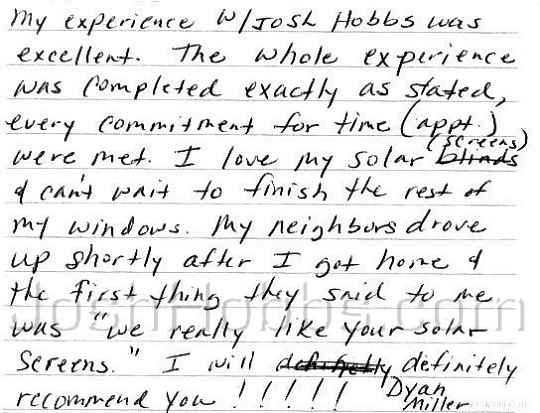 My experience w/Josh Hobbs was
excellent. The whole experience
was completed exactly as stated,
every commitment for time (appt.)
were met. I love my solar blinds (screens)
& can't wait to finish the rest of
my windows. My neighbors drove
up shortly after I got home &
the first thing they said to me
was "we really like your solar
screens." I will definetly definitely
recommend you ! ! ! ! ! Dyan
Miller
JoshHobbs.com